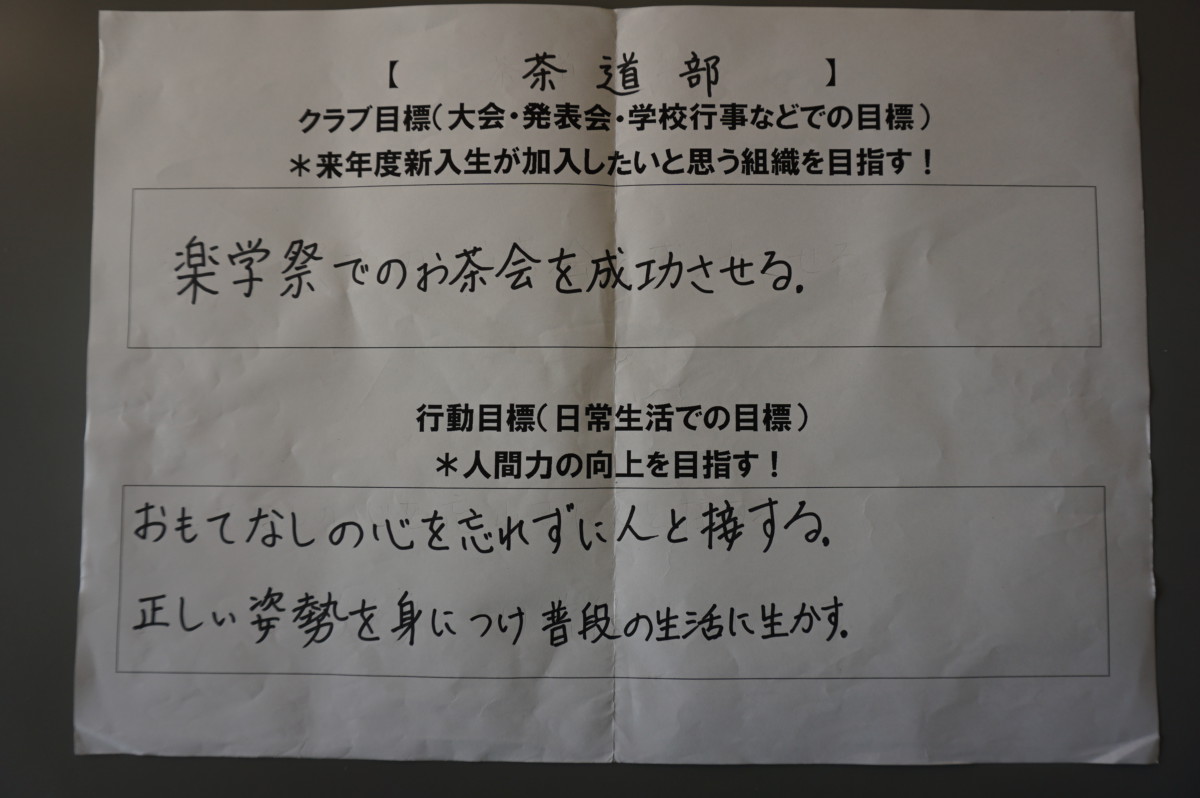 【 茶道部 】
クラブ目標(大会・発表会・学校行事などでの目標)
＊来年度新入生が加入したいと思う組織を目指す！
楽学祭でのお茶会を成功させる.
行動目標(日常生活での目標)
＊人間力の向上を目指す！
おもてなしの心を忘れずに人と接する.
正しい姿勢を身につけ普段の生活に生かす.